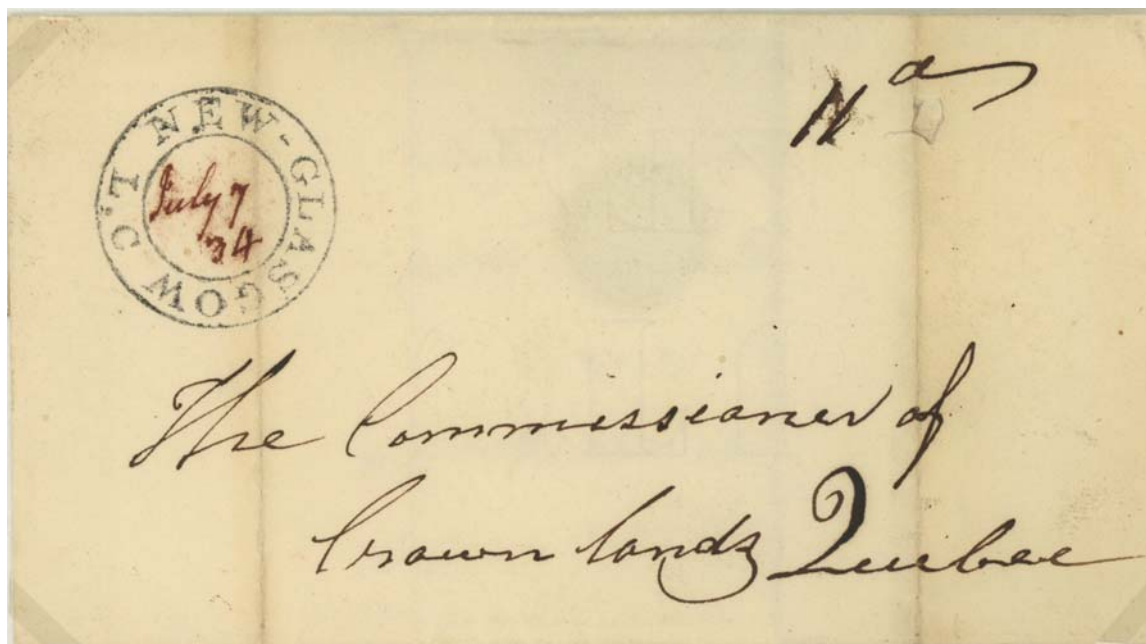 NEW-GLASGOW L.C.
July 7
34
11 d
The Commissioner of
Crown Lands Quebec